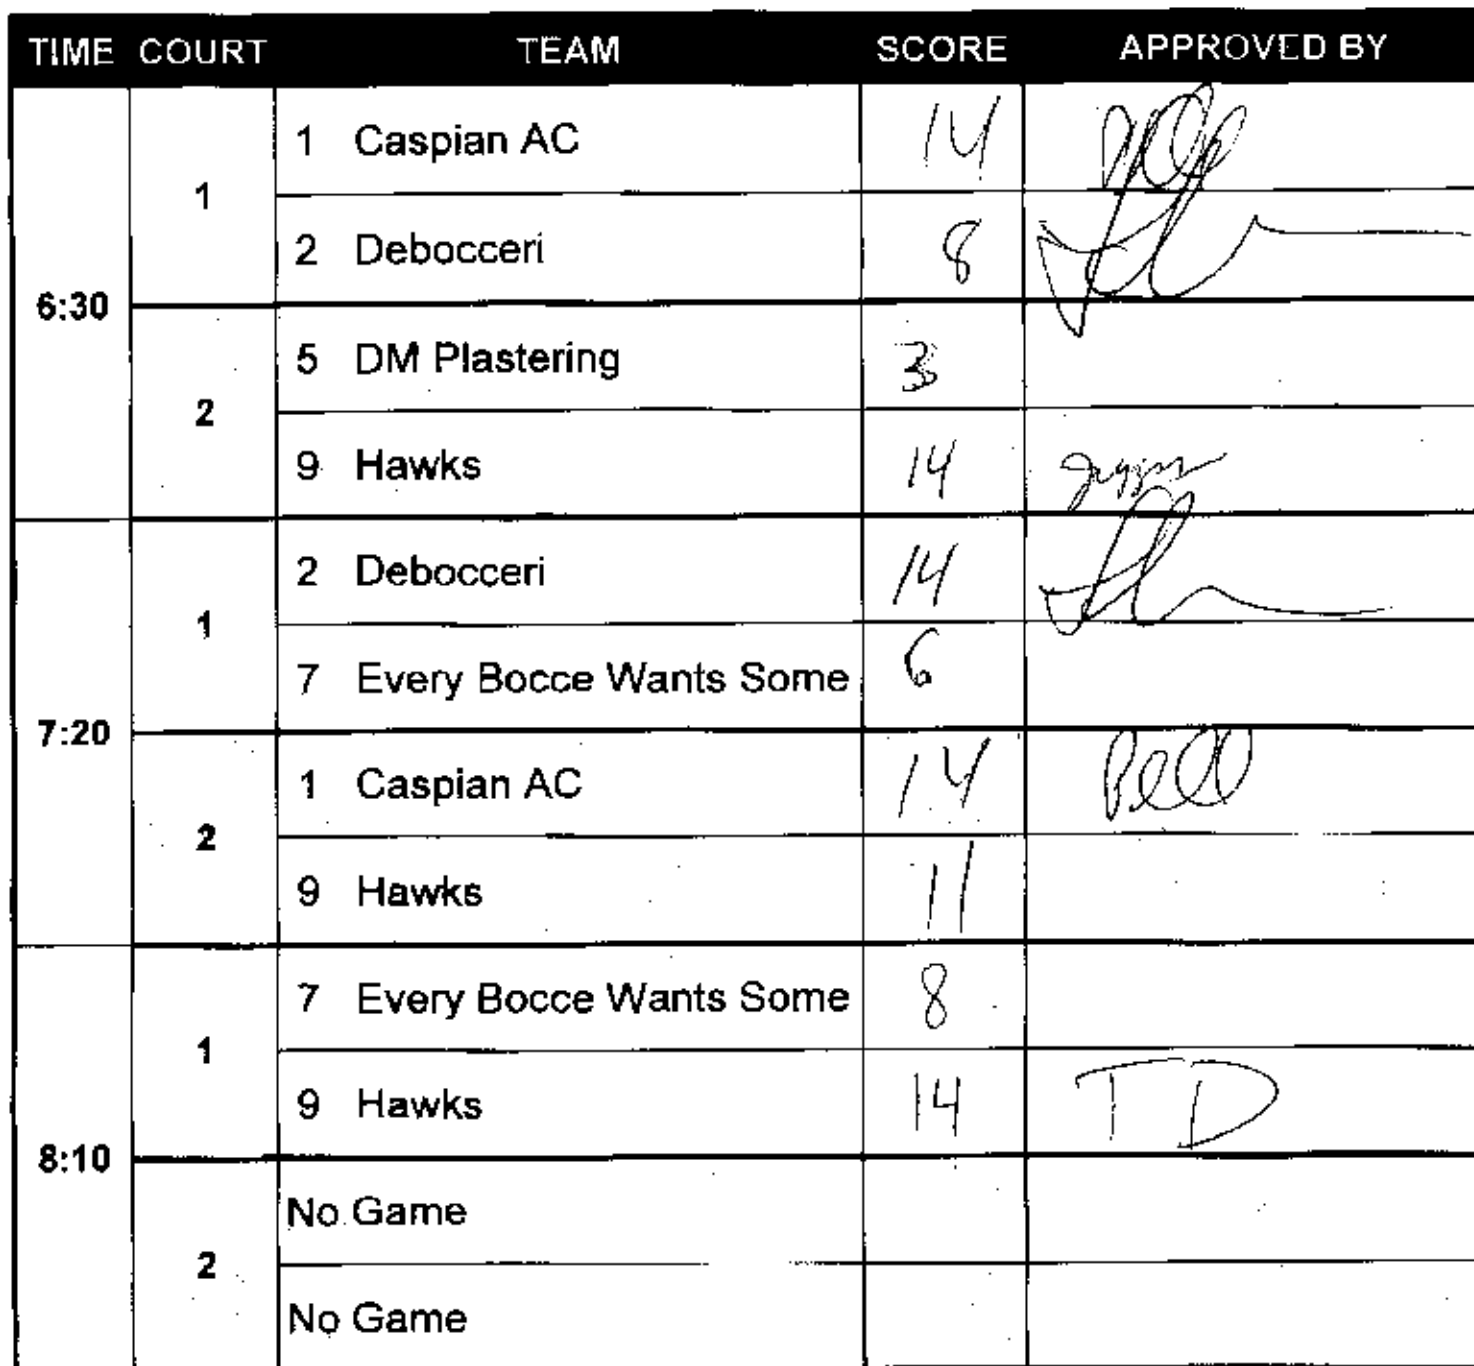 TIME COURT TEAM SCORE APPROVED BY
6:30
1
1 Caspian AC 14
2 Debocceri 8
2
5 DM Plastering 3
9 Hawks 14
7:20
1
2 Debocceri 14
7 Every Bocce Wants Some 6
2
1 Caspian AC 14 Bell
9 Hawks 11
8:10
1
7 Every Bocce Wants Some 8
9 Hawks 14 TD
2
No Game
No Game